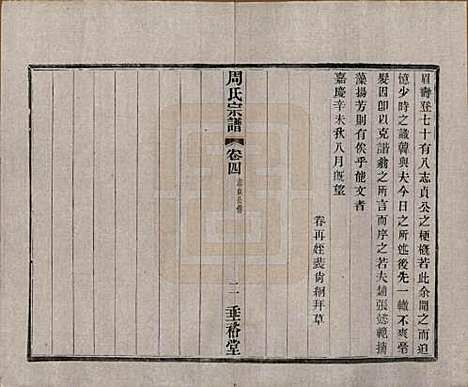 眉壽登七十有八志貞公之梗概若此余聞之而追
憶少時之識韓與夫今日之所述後先一轍不爽毫
髮因卽以克諧翁之所言而序之若夫鋪張懿範摛
藻揚芳則有俟乎能文者
嘉慶辛未秋八月旣望
眷再姪裴
拜草
周氏宗譜
卷四
二
垂裕堂